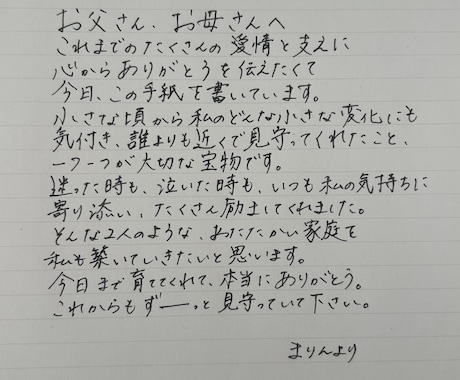 お父さん、お母さんへ
これまでのたくさんの愛情と支えに
心からありがとうを伝えたくて
今日、この手紙を書いています。
小さな頃から私のどんな小さな変化にも
気付き、誰よりも近くで見守ってくれたこと、
一つ一つが大切な宝物です。
迷った時も、泣いた時も、いつも私の気持ちに
寄り添い、たくさん励ましてくれました。
そんな2人のような、あたたかい家庭を
私も築いていきたいと思います。
今日まで育ててくれて、本当にありがとう。
これからもずーーっと見守っていて下さい。
まりんより